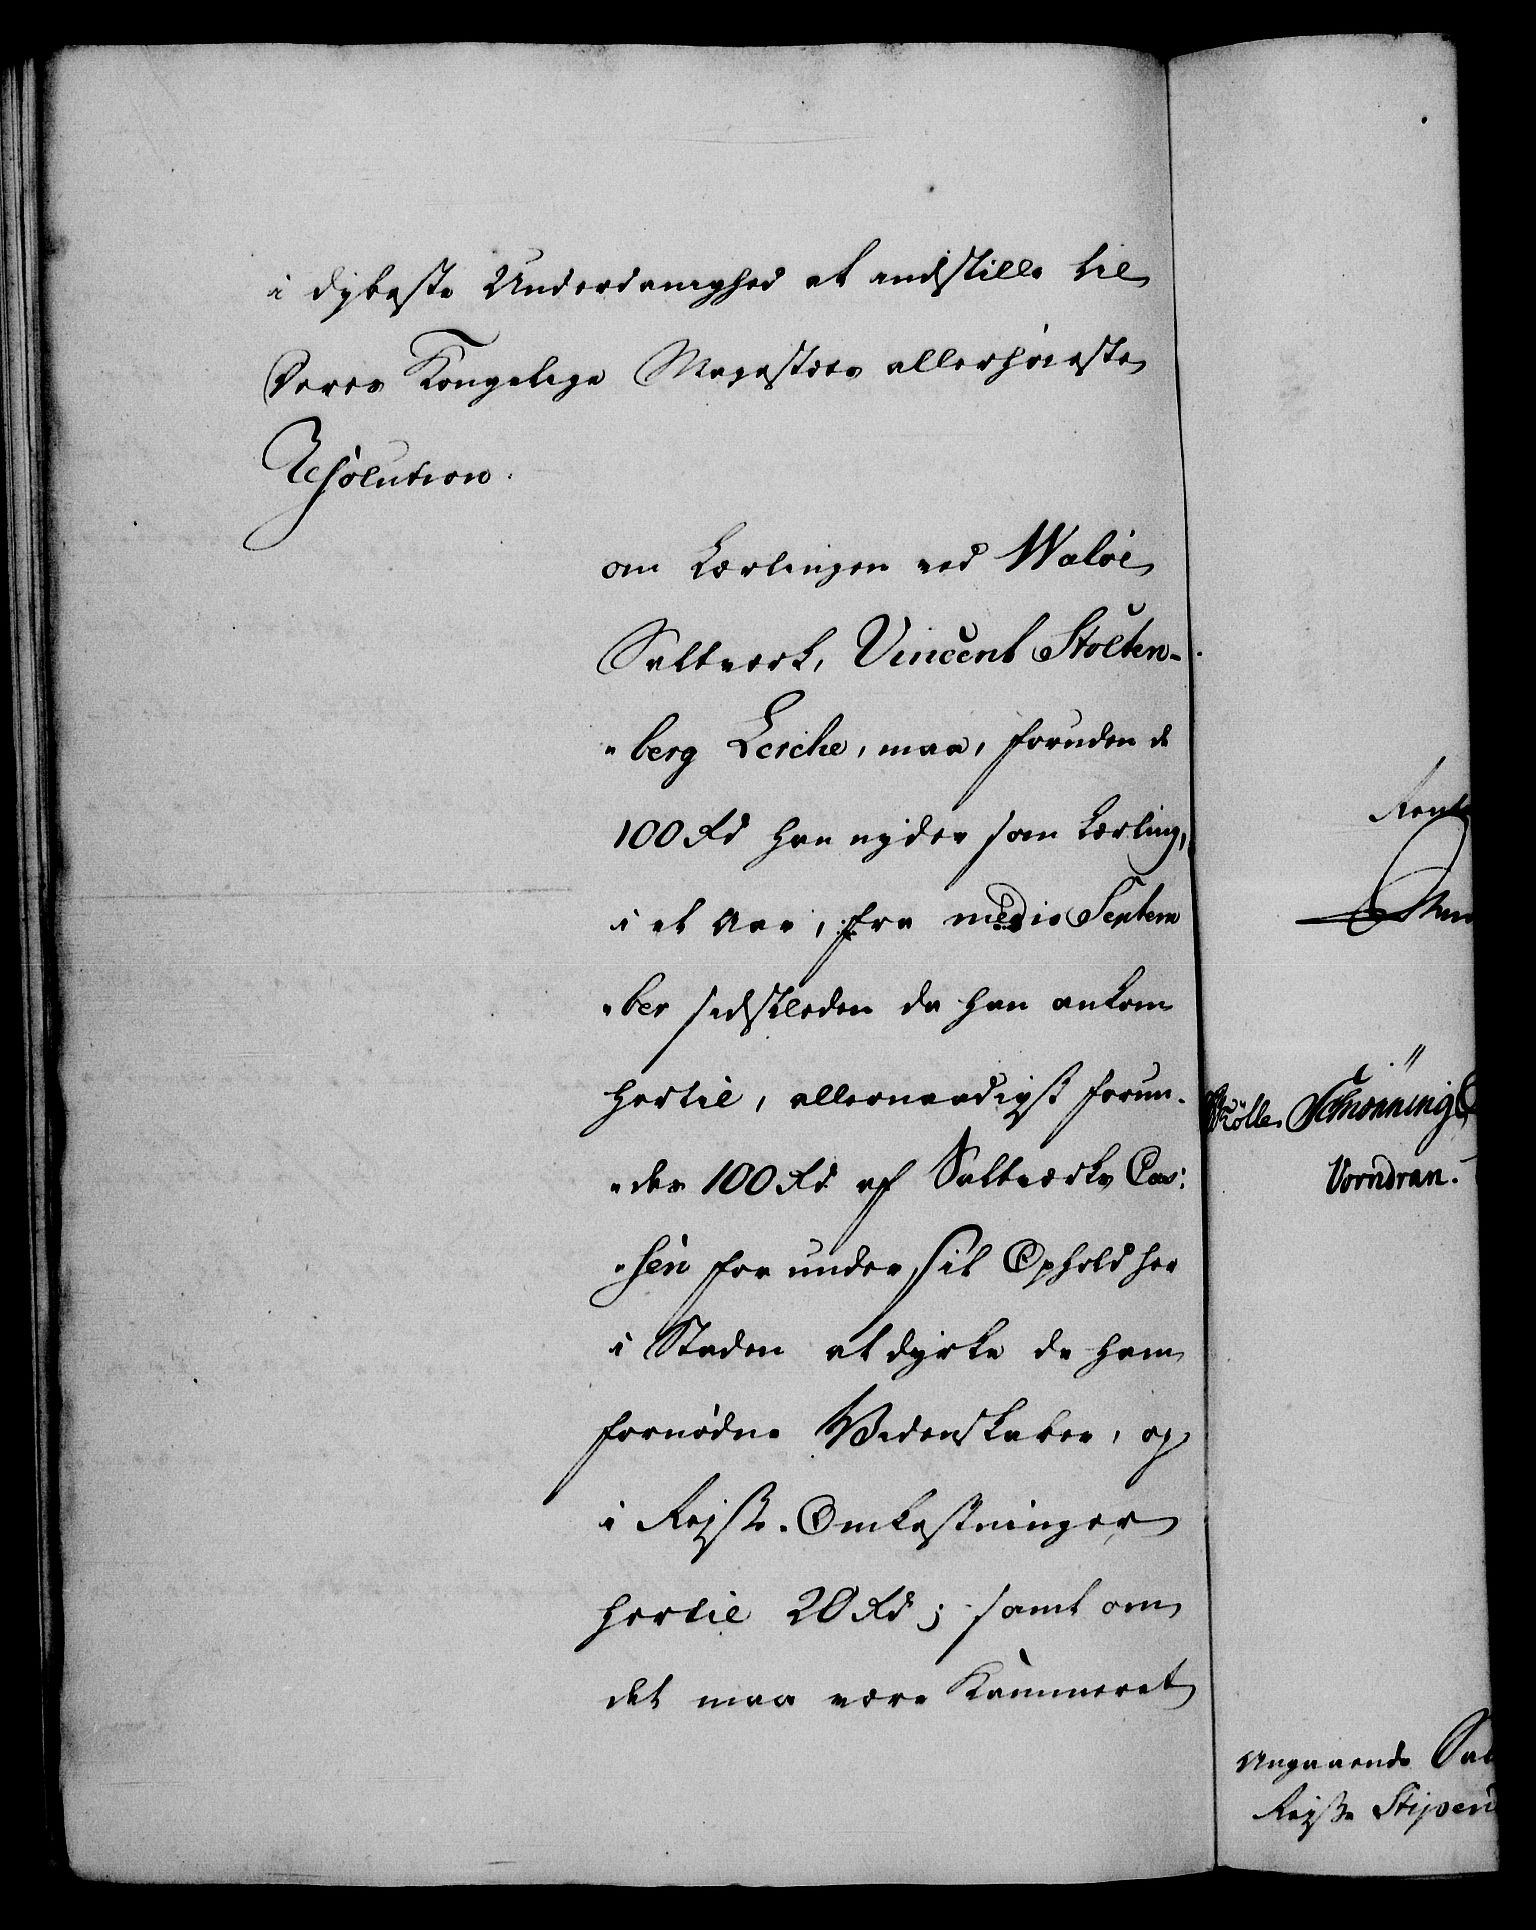 i dybeste Underdanighed at indstille til
Deres Kongelige Majestæts allerhøieste
Resolution.
om Lærlingen ved Waløe
Saltværk, Vincent Stolten-
"berg Lerche, maa, foruden de
100 Rd han nyder som Lærling,
i et Aar, fra medio Septem
"ber sidstleden da han ankom
hertil, allernaadigst forun-
"des 100 Rd af Saltværks Cas-
"sen for under sit Ophold her
i Staden at dyrke de ham
fornødne Videnskaber, og
i Rejse-Omkostninger
hertil 20 Rd; samt om
det maa være Kammeret
Rente
Schønning
Vorndran.
Angaaende Sal
Rejse Stipen